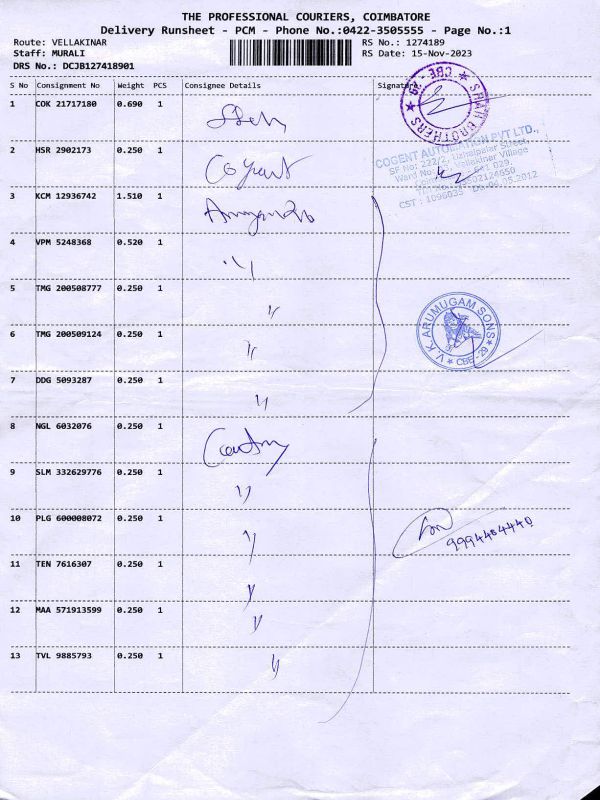 THE PROFESSIONAL COURIERS, COIMBATORE
Delivery Runsheet - PCM - Phone No.:0422-3505555 - Page No.:1
Route: VELLAKINAR
RS No.: 1274189
Staff: MURALI
RS Date: 15-Nov-2023
DRS No.: DCJB127418901
S No Consignment No Weight PCS Consignee Details Signature
1 COK 21717180 0.690 1
CBE - 29 ★ BROTHERS ★
2 HSR 2902173 0.250 1
COGENT AUTOMATION PVT LTD.,
SF No: 222/2, Street,
Ward No Vellakinar Village
641 029.
CST : 1096035 2012
3 KCM 12936742 1.510 1
4 VPM 5248368 0.520 1 "
5 TMG 200508777 0.250 1 "
V.K. ARUMUGAM SONS ★ CBE - 29 ★
6 TMG 200509124 0.250 1 "
7 DDG 5093287 0.250 1 "
8 NGL 6032076 0.250 1
9 SLM 332629776 0.250 1 "
10 PLG 600008072 0.250 1 "
9994484440
11 TEN 7616307 0.250 1 "
12 MAA 571913599 0.250 1 "
13 TVL 9885793 0.250 1 "